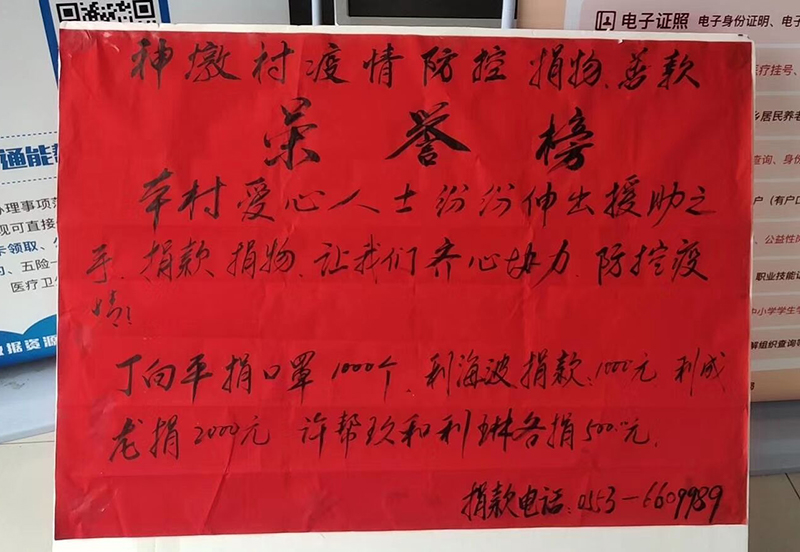 神墩村疫情防控捐物、善款
荣誉榜
本村爱心人士份份伸出援助之
手、捐款捐物、让我们齐心协力防控疫
情!
丁向平捐口罩1000个、利海波捐款:1000元 利成
龙捐2000元 许帮玖和利琳各捐500元.
捐款电话:0553-6609989
电子证照 电子身份证明、电子
医疗挂号、
乡居民养老
查询、身份
户(有户口
、公益性岗
职业技能
中小学学生学
解组织查询
通能
办理事项
现可直接
卡领取、
、五险一
医疗卫
数据资源